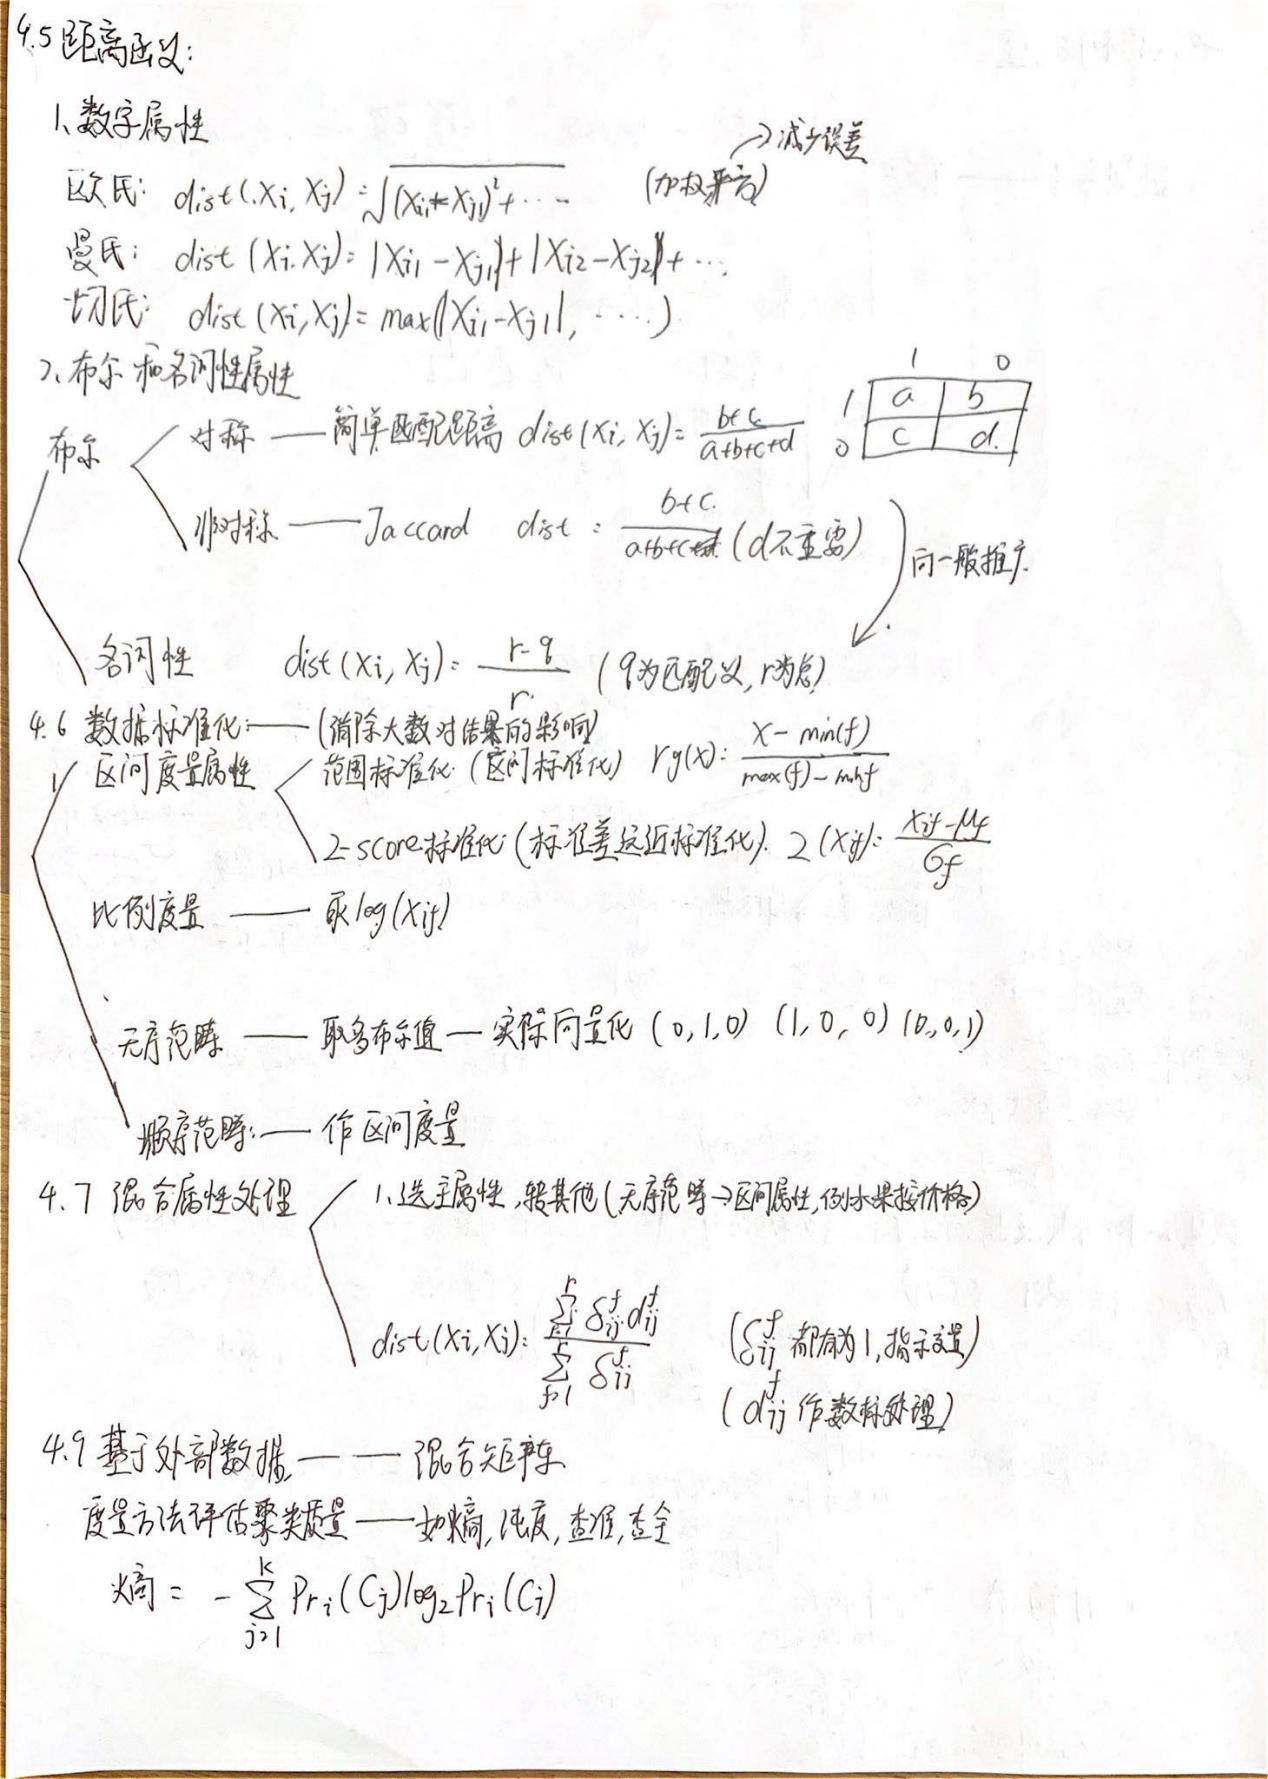 4.5 距离函义:
1、数字属性
→减少误差
欧氏: dist(xi, xj) = √(xi1 - xj1)² + ···
(加权乘方)
曼氏: dist (xi, xj) = |xi1 - xj1| + |xi2 - xj2| + ···
切氏: dist (xi, xj) = max(|xi1 - xj1|, ····)
2、布尔和名词性属性
1 0
1 a b
0 c d
布尔
对称 —— 简单匹配距离 dist(xi, xj) = b+c / a+b+c+d
非对称 —— Jaccard dist = b+c / a+b+c (d不重要)
向一般推广
名词性 dist(xi, xj) = r-q / r (q为匹配义, r为总)
4.6 数据标准化 —— (消除大数对结果的影响)
区间度量属性
范围标准化 (区间标准化) rg(x) = x - min(f) / max(f) - minf
Z-score标准化 (标准差远近标准化) Z(xif) = xif - μf / σf
比例度量 —— 取log(xif)
无序范畴 —— 取多布尔值 — 实际向量化 (0,1,0) (1,0,0) (0,0,1)
顺序范畴: —— 作区间度量
4.7 混合属性处理
1、选主属性,转其他(无序范畴→区间属性,例水果按价格)
dist(xi, xj) = Σ(f=1, r) δij^f dij^f / Σ(f=1, r) δij^f
(δij^f 都有为1,指示变量)
(dij^f 作数标处理)
4.9 基于外部数据 —— 混合矩阵
度量方法评估聚类质量 —— 如熵,纯度,查准,查全
熵 = - Σ(j=1, k) Pri(Cj) log2 Pri(Cj)